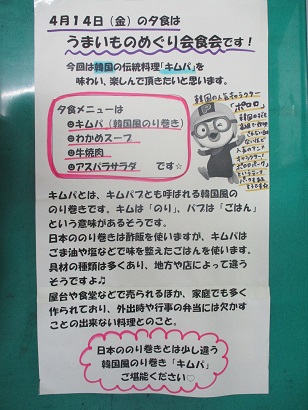 4月14日(金)の夕食は
うまいものめぐり会食会です!
今回は韓国の伝統料理「キムパ」を
味わい、楽しんで頂きたいと思います。
夕食メニューは
❶キムパ(韓国風のり巻き)
❷わかめスープ
❸牛焼肉
❹アスパラサラダ です☆
韓国の人気キャラクター
「ポロロ」
キムパとは、キムパプとも呼ばれる韓国風
のり巻きです。キムは「のり」、パプは「ごはん」
という意味があるそうです。
日本ののり巻きは酢飯を使いますが、キムパは
ごま油や塩などで味を整えたごはんを使います。
具材の種類は多くあり、地方や店によって違う
そうですよ♫
屋台や食堂などで売られるほか、家庭でも多く
作られており、外出時や行事の弁当には欠かす
ことの出来ない料理とのこと。
日本ののり巻きとは少し違う
韓国風のり巻き「キムパ」
ご堪能ください♡